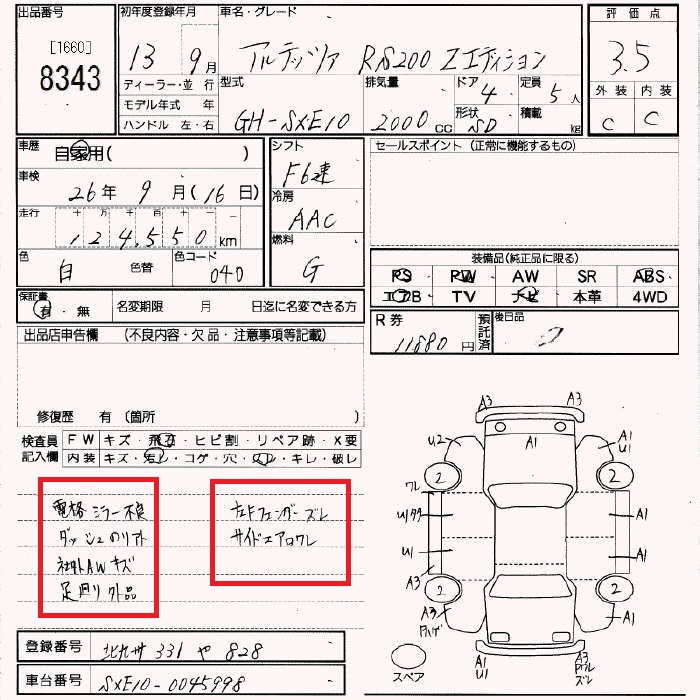 出品番号
[1660]
8343
初年度登録年月
13 9月
ディーラー・並 行
モデル年式 年
ハンドル 左・右
車名・グレード
アルテッツァ RS200 Zエディション
型式
GH-SXE10
排気量
2000cc
ドア
4
形状
SD
定員
5人
積載
kg
評価点
3.5
外装 内装
C C
車歴
自家用( )
車検
26年 9月(16日)
走行
十 万 千 百 十
124,550km
色
白 色替
色コード
040
シフト
F6速
冷房
AAC
燃料
G
セールスポイント (正常に機能するもの)
装備品(純正品に限る)
PS PW AW SR ABS
エアB TV ナビ 本革 4WD
保証書
有・無
名変期限 月 日迄に名変できる方
R券
11880円
預託済
後日品
出品店申告欄 (不良内容・欠品・注意事項等記載)
修復歴 有 (箇所 )
検査員記入欄
FW キズ・飛石・ヒビ割・リペア跡・X要
内装 キズ・コゲ・穴・キレ・破レ
電格ミラー不良
ダッシュのリアト
社外AWキズ
足廻り外品
左Fフェンダーズレ
サイドエアロワレ
A3 A3
U2 A1 A1
U1
2 2
ワレ
A1
U1
U1
A1
A3
2 2
A3 A1
A1
U1
A3
ズレ
スペア
登録番号
北九州 331 や 828
車台番号
SXE10-0045998